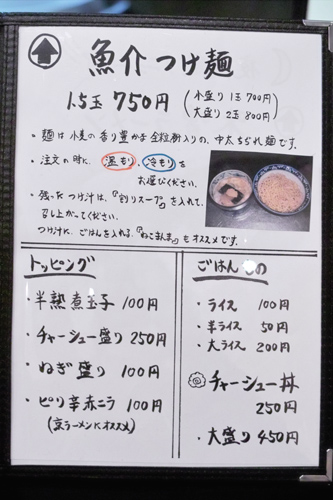 魚介つけ麺
1.5玉 750円 (小盛り 1玉 700円
大盛り 2玉 800円)
・麺は小麦の香り豊かな全粒粉入りの、中太ちぢれ麺です。
・注文の時に、温もり、冷もりを
お選びください。
・残ったつけ汁は、『割りスープ』を入れて、
召し上がってください。
つけ汁に、ごはんを入れる、『ねこまんま』もオススメです。
トッピング
・半熟煮玉子 100円
・チャーシュー盛り 250円
・ねぎ盛り 100円
・ピリ辛赤ニラ 100円
(京ラーメンにオススメ)
ごはんもの
・ライス 100円
・半ライス 50円
・大ライス 200円
チャーシュー丼
250円
・大盛り 450円